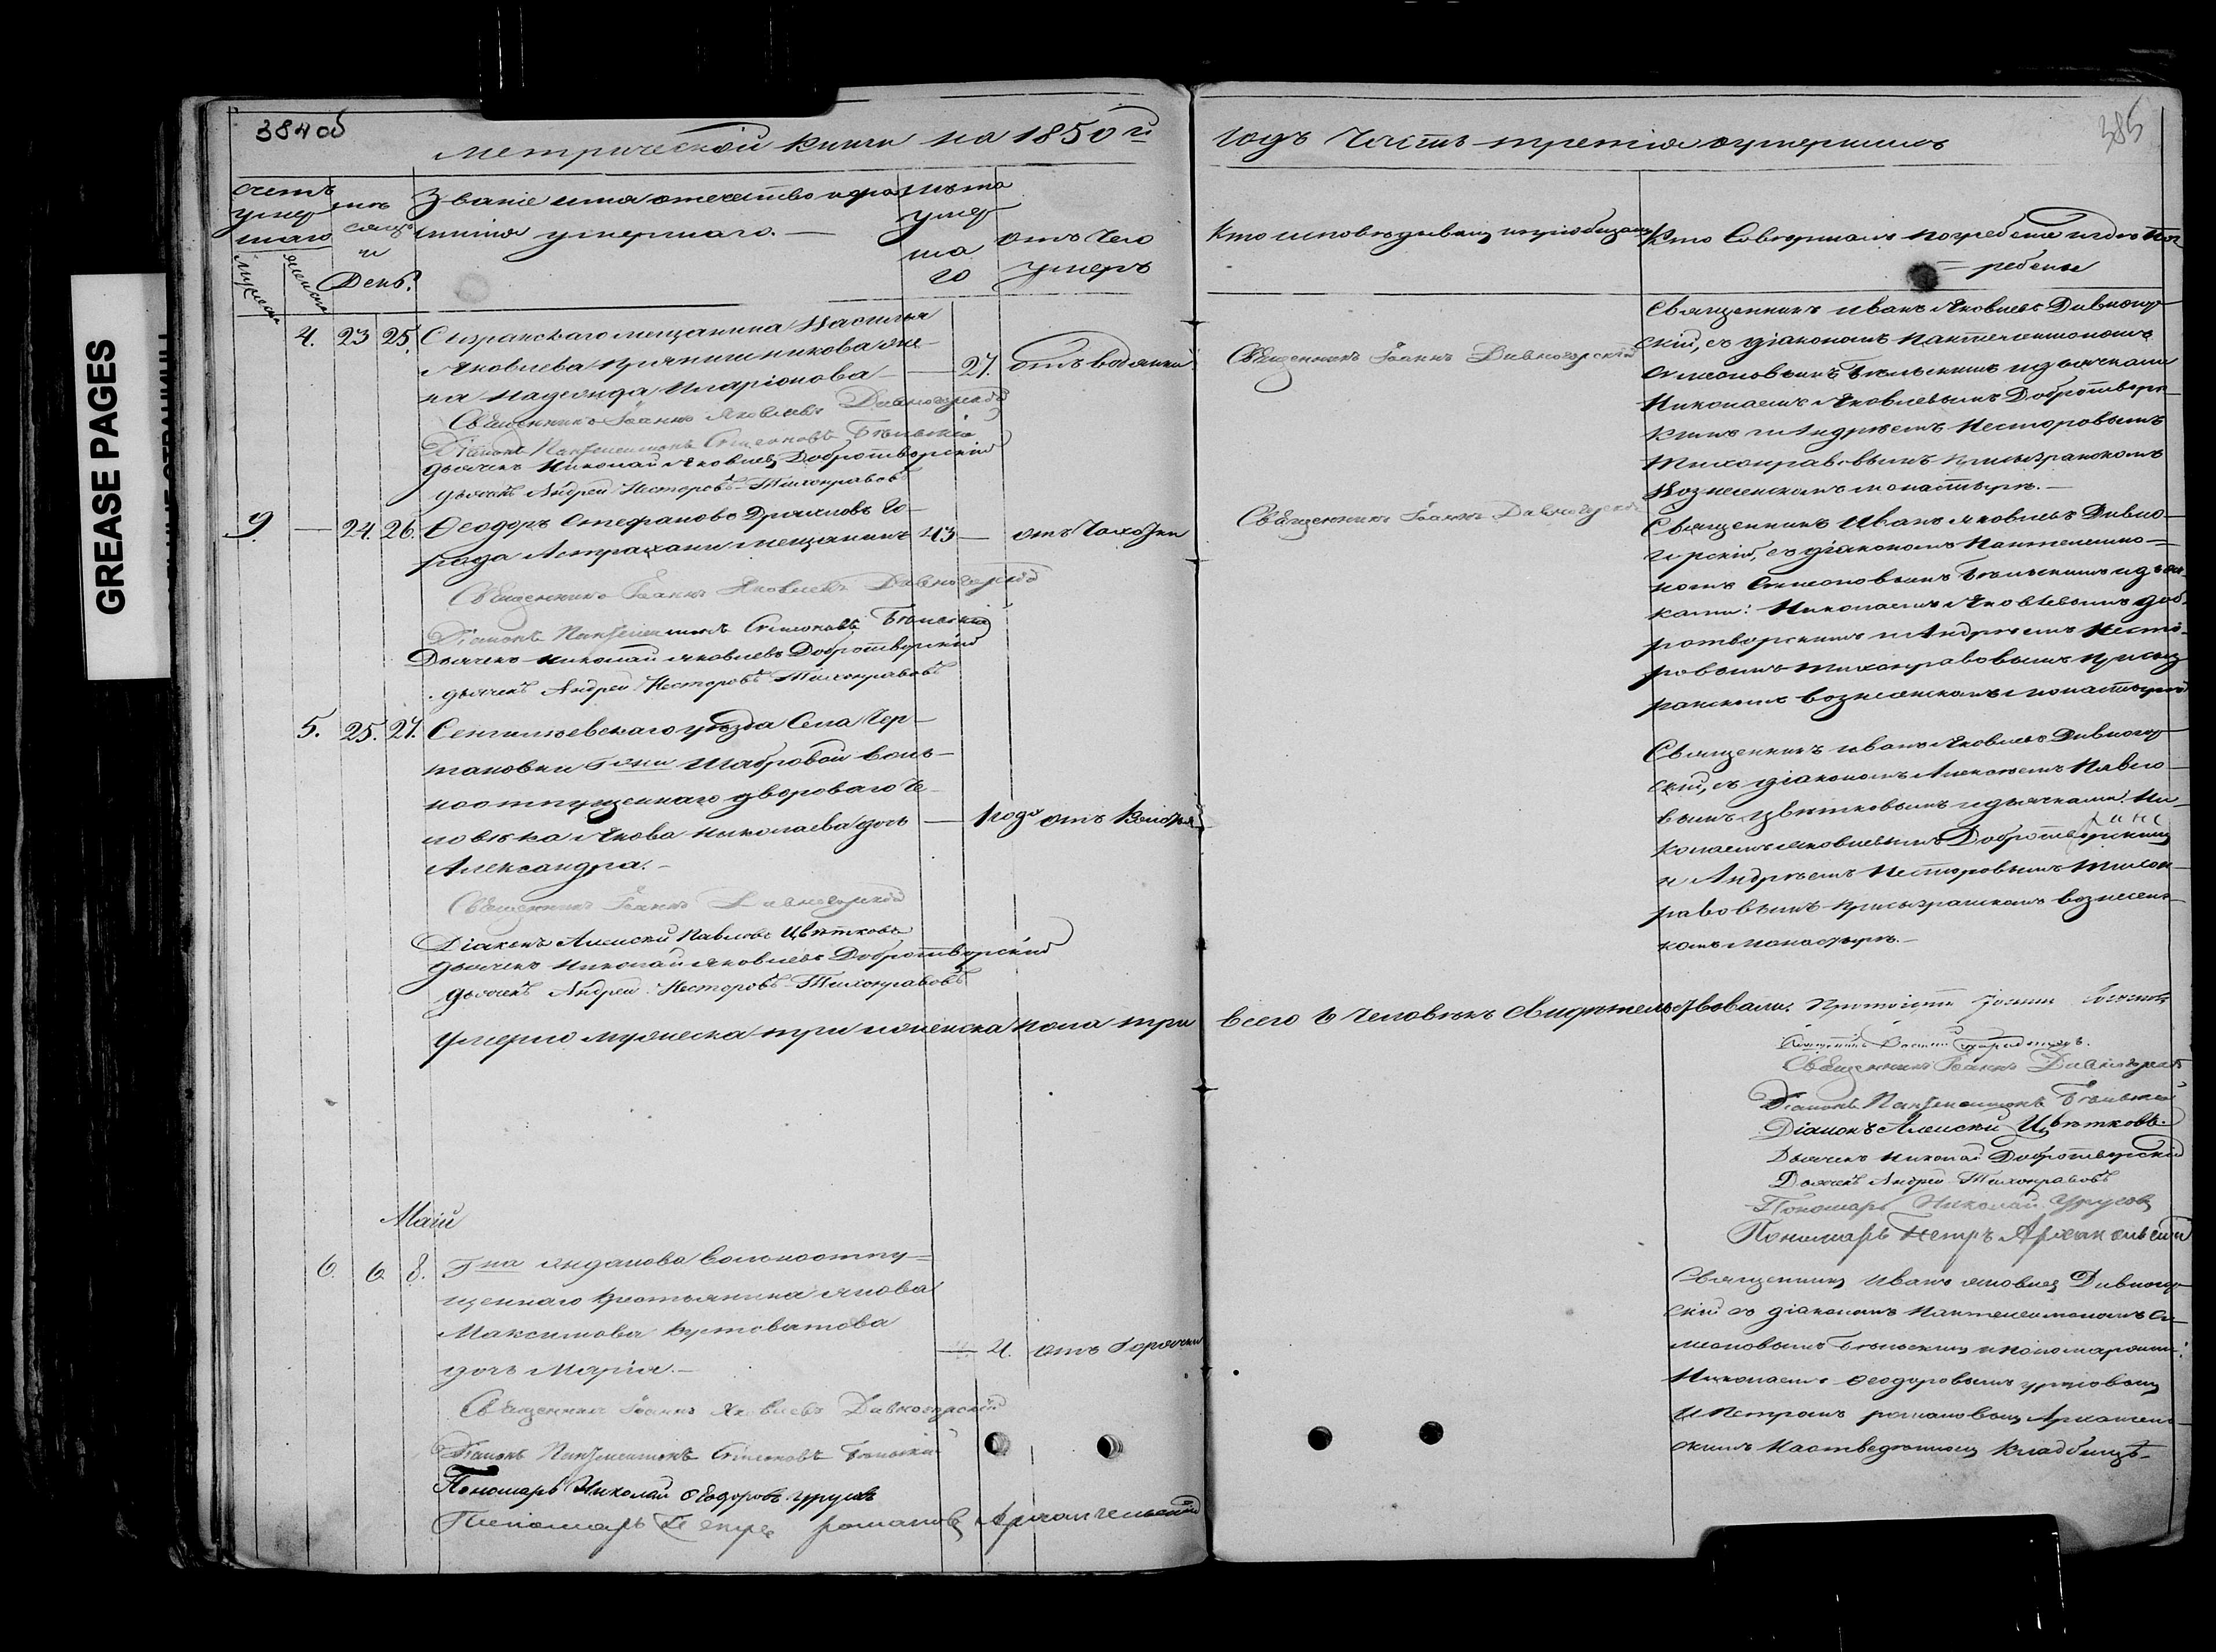 384 об
385
GREASE PAGES
Метрической книги на 1850 й
годъ Часть третія оумершихъ
счетъ умер шаго
мужеска
женска
День.
Званіе имя отечество и фа
милія умершаго.
лѣта умер ша го
отъ чего умеръ
Кто исповѣдывалъ и пріобщалъ
Кто Совершалъ погребеніе и гдѣ пог
ребены
4. 23 25. Сызранскаго мещанина Василья
Яковлева Прянишникова же-
на Надежда Иларіонова 27. отъ водянки
Священникъ Іоаннъ Яковлевъ Дивногорскій
Діаконъ Пантелеимонъ Симеоновъ Бѣльскій
дьячекъ Николай Яковлев Добротворскій
дьячекъ Андрей Несторовъ Тихонравовъ
Священникъ Іоаннъ Дивногорскій
Священникъ Иванъ Яковлевъ Дивногор-
скій, съ діакономъ Пантелеимономъ
Симеоновымъ Бѣльскимъ и дьячками
Николаемъ Яковлевымъ Добротворс-
кимъ и Андреемъ Несторовымъ
Тихонравовымъ при Сызранскомъ
Вознесенскомъ монастырѣ.
9. 24. 26. Ѳеодоръ Стефановъ го-
рода Астрахани мещанинъ 43 отъ Чахотки
Священникъ Іоаннъ Яковлевъ Дивногорскій
Діаконъ Пантелеимонъ Симеоновъ Бѣльскій
Дьячекъ Николай Яковлевъ Добротворскій
дьячекъ Андрей Несторовъ Тихонравовъ
Священникъ Іоаннъ Дивногорскій
Священникъ Иванъ Яковлевъ Дивно-
горскій, съ діакономъ Пантелеимо-
номъ Симеоновымъ Бѣльскимъ и дьяч-
ками: Николаемъ Яковлевымъ Доб-
ротворскимъ и Андреемъ Несто-
ровымъ Тихонравовымъ при Сыз
ранскомъ вознесенскомъ монастырѣ
5. 25. 27. Сенгилѣевскаго уѣзда Села Чер-
таковки Гжи Шабровой воль-
ноотпущеннаго двороваго Че-
ловѣка Якова Николаева дочь 1 годъ
Александра.
Священникъ Іоаннъ Дивногорскій
Діаконъ Алексѣй Павловъ Цвѣтковъ
дьячекъ Николай Яковлевъ Добротворскій
дьячекъ Андрей Несторовъ Тихонравовъ
Священникъ Иванъ Яковлевъ Дивногор-
скій, съ діакономъ Алексѣемъ Павло-
вымъ Цвѣтковымъ и дьячками: Ни-
колаемъ Яковлевымъ Добротворскимъ
и Андреемъ Несторовымъ Тихон-
равовымъ при Сызранскомъ вознесенс-
комъ монастырѣ.
Умерло мужеска три и женска пола три
всего 6 Человѣкъ Свидѣтельствовали.
Священникъ Іоаннъ Дивногорскій
Діаконъ Пантелеимонъ Бѣльскій
Діаконъ Алексѣй Цвѣтковъ.
Дьячекъ Николай Добротворскій
Дьячекъ Андрей Тихонравовъ
Пономарь Николай Урусовъ
Пономарь Петръ Архангельскій
Маій
6. 6 8. Гна вольноотпу-
щеннаго крестьянина Якова
Максимова
дочь Марія. 4. отъ Горячки
Священникъ Іоаннъ Яковлевъ Дивногорскій
Діаконъ Пантелеимонъ Симеоновъ Бѣльскій
Пономарь Николай Ѳеодоровъ Урусовъ
Пономарь Петръ Романовъ Архангельскій
Священникъ Иванъ Яковлев Дивногор-
скій съ діакономъ Пантелеимономъ Си-
меоновымъ Бѣльскимъ и пономарями:
Николаемъ Ѳеодоровымъ Урусовым
и Петромъ Романовым Архангель-
скимъ на отведенномъ Кладбищѣ